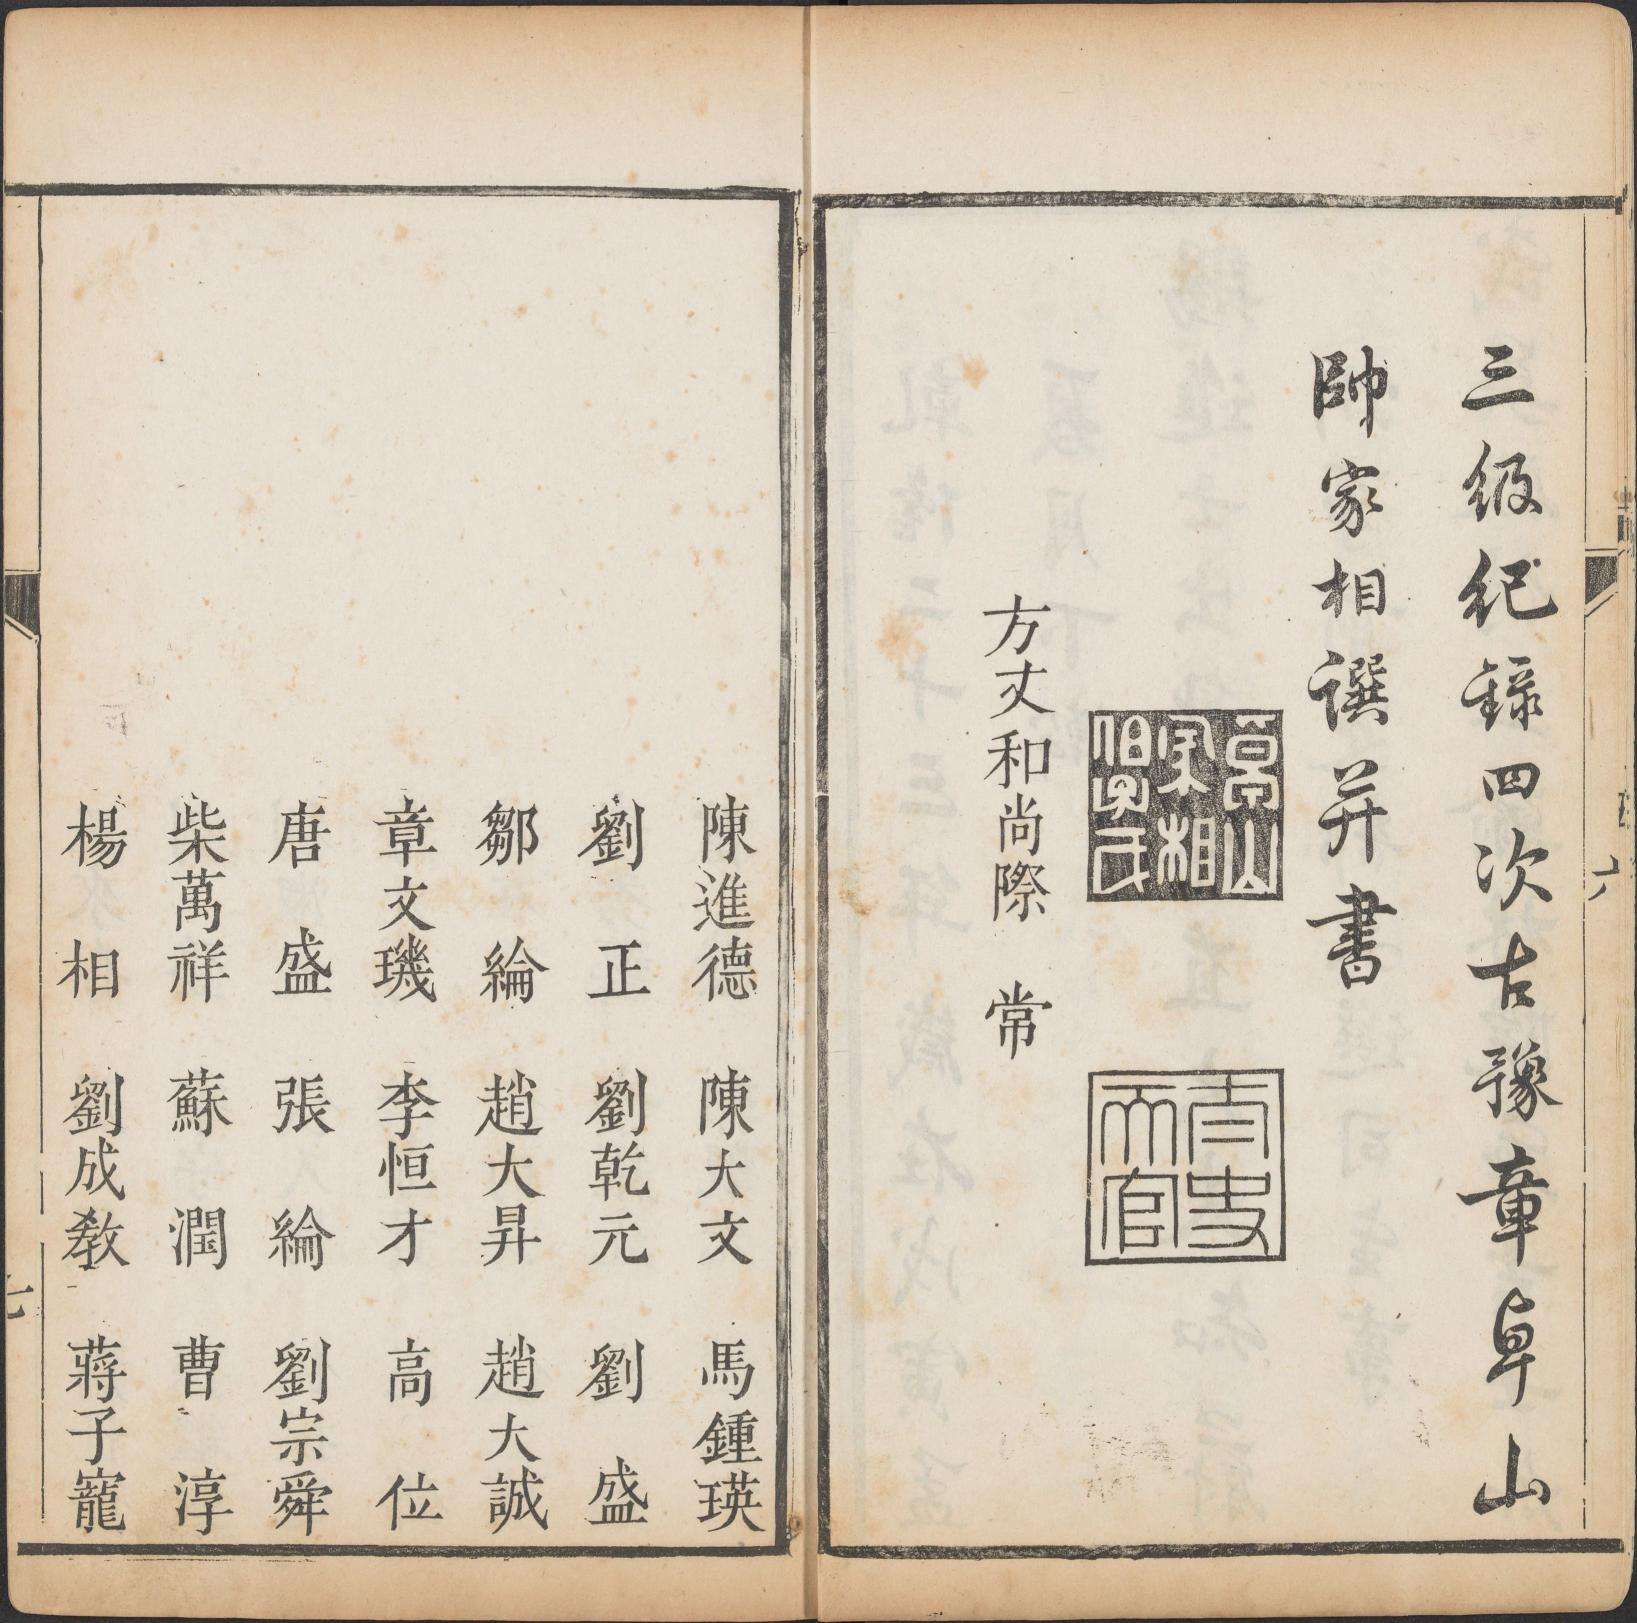 三級紀錄四次古豫章阜山
帥家相譔并書
景山
家相
伯子氏
青史
天官
方丈和尚際常
六
陳進德 陳大文 馬鍾瑛
劉正 劉乾元 劉盛
鄒綸 趙大昇 趙大誠
章文璣 李恒才 高位
唐盛 張綸 劉宗舜
柴萬祥 蘇潤 曹淳
楊相 劉成教 蔣子寵
七